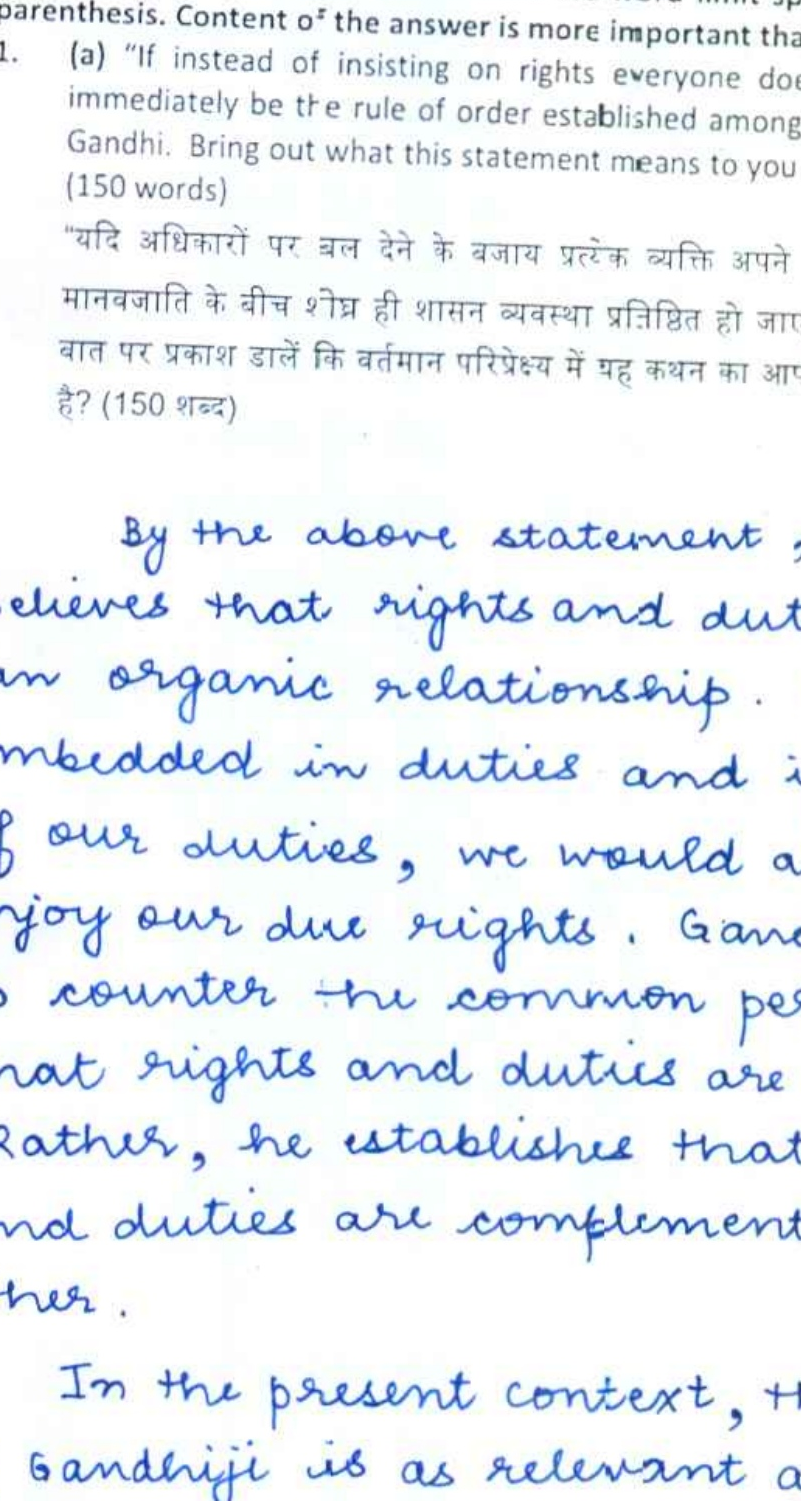 parenthesis. Content of the answer is more important tha
1. (a) "If instead of insisting on rights everyone doe
immediately be the rule of order established among
Gandhi. Bring out what this statement means to you
(150 words)
"यदि अधिकारों पर बल देने के बजाय प्रत्येक व्यक्ति अपने
मानवजाति के बीच शीघ्र ही शासन व्यवस्था प्रतिष्ठित हो जाए
बात पर प्रकाश डालें कि वर्तमान परिप्रेक्ष्य में यह कथन का आप
है? (150 शब्द)
By the above statement,
elieves that rights and dut
an organic relationship.
mbedded in duties and i
f our duties, we would a
njoy our due rights. Gand
o counter the common per
hat rights and duties are
Rather, he establishes that
nd duties are complement
ther.
In the present context, th
Gandhiji is as relevant a